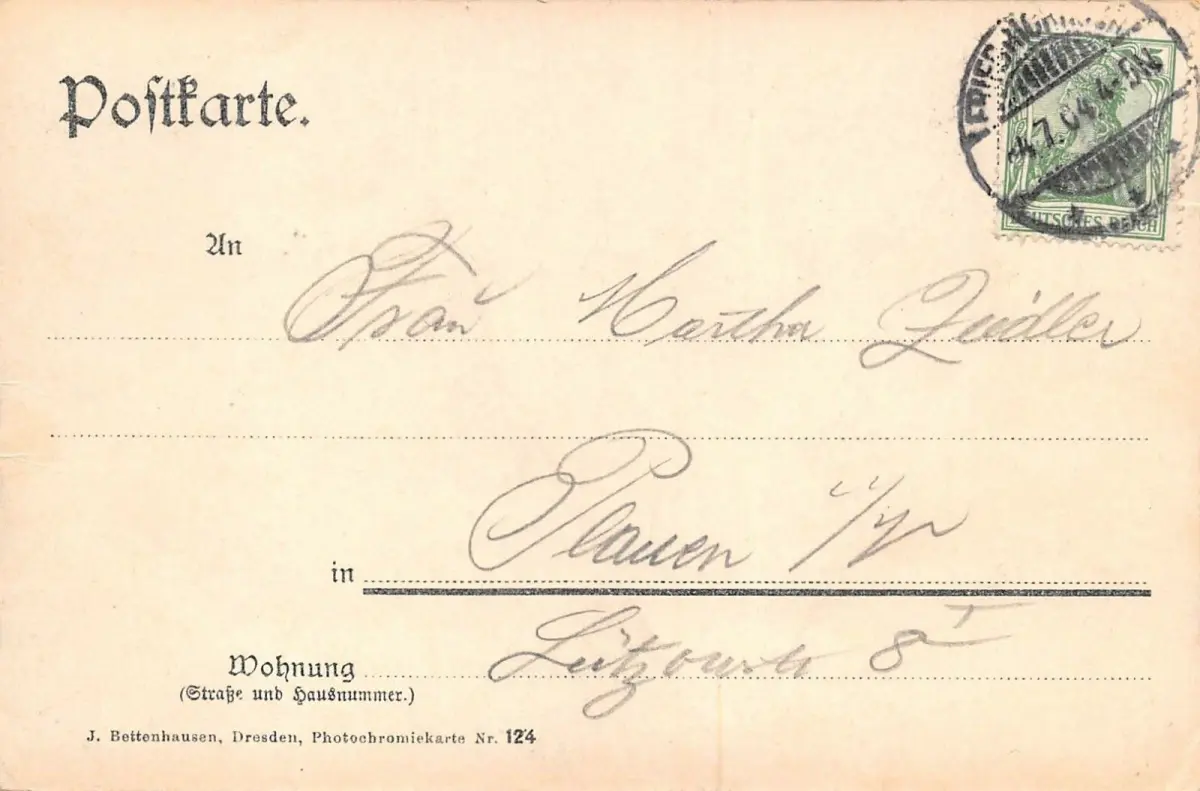 Postkarte.
4.7.04.4-5N.
DEUTSCHES REICH
An
Frau Martha Zeidler
in Plauen i/V
Lützowstr 8 I
Wohnung
(Straße und Hausnummer.)
J. Bettenhausen, Dresden, Photochromiekarte Nr. 124